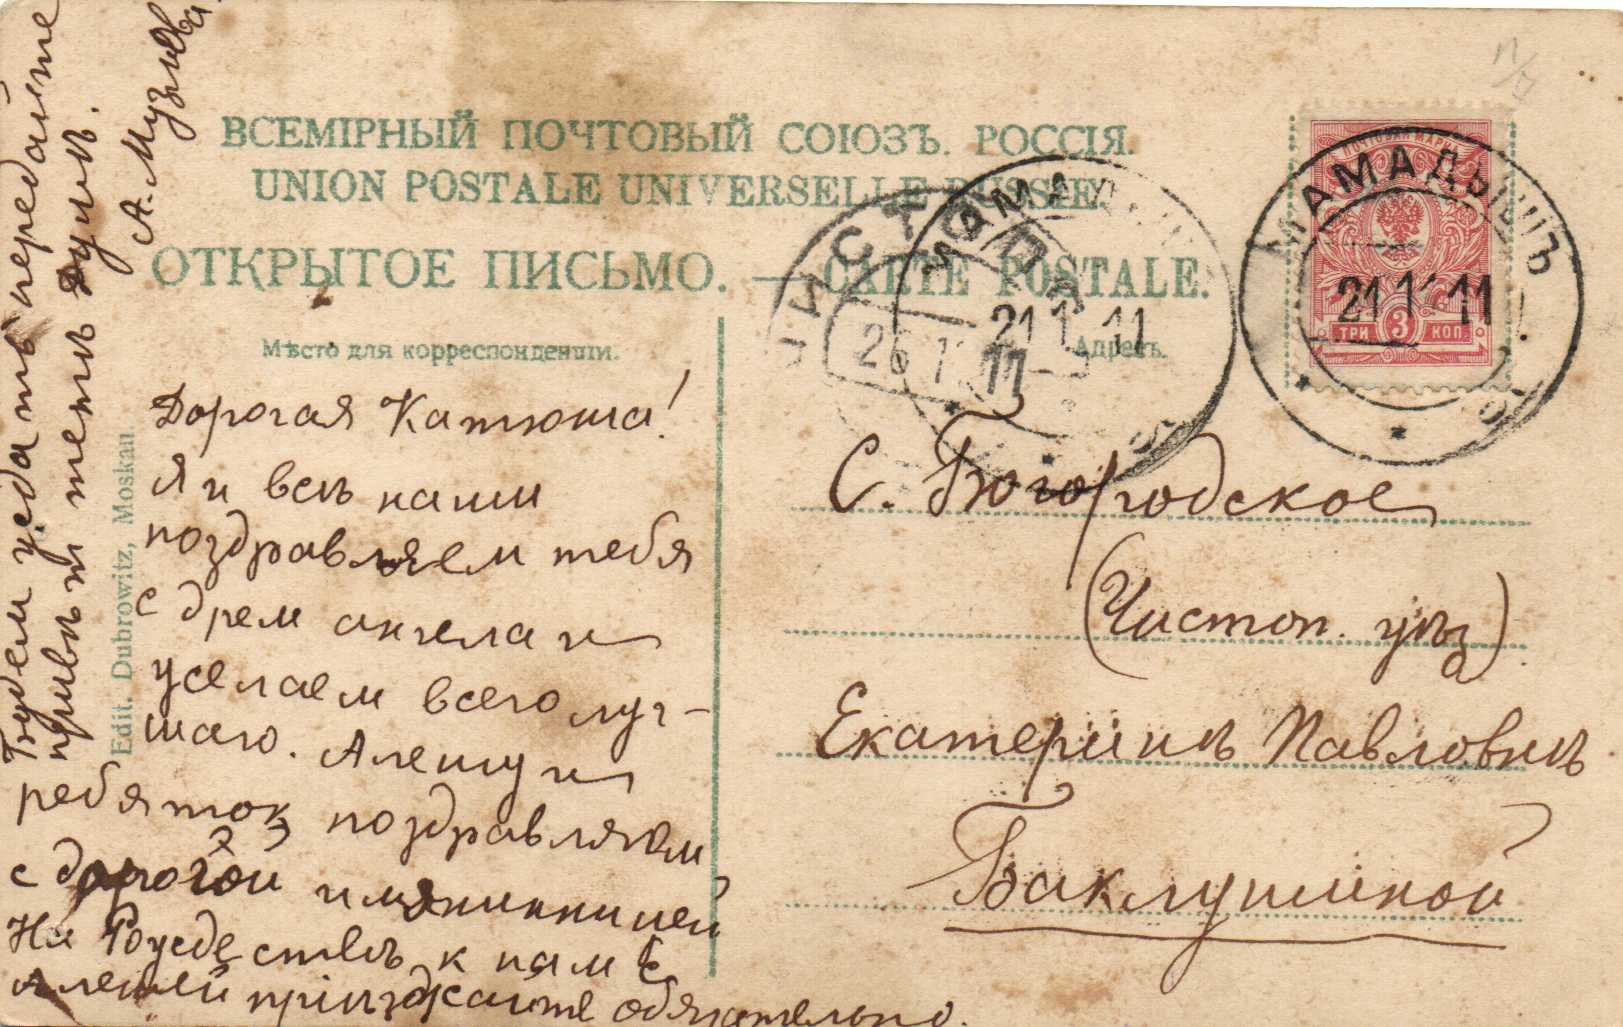 ВСЕМІРНЫЙ ПОЧТОВЫЙ СОЮЗЪ. РОССІЯ.
UNION POSTALE UNIVERSELLE RUSSIE.
ОТКРЫТОЕ ПИСЬМО. — CARTE POSTALE.
Мѣсто для корреспонденціи.
Адресъ.
Дорогая Катюша!
Я и всѣ наши
поздравляем тебя
с днем ангела и
желаем всего луч-
шаго. Алешу и
ребяток поздравляем
с дорогой имянинницей
На Рождествѣ к нам с
Алешей пріѣзжайте обязательно.
Будем ждать передайте
привѣт тетѣ Дунѣ.
А. Музы
С. Богородское
(Чистоп. уѣз)
Екатеринѣ Павловнѣ
Баклушиной
Edit. Dubrowitz, Moskau.
ПОЧТОВАЯ МАРКА
ТРИ 3 КОП
МАМАДЫШЪ
21 1 11
МАМАДЫШЪ
21 1 11
ЧИСТОП
26 1 11